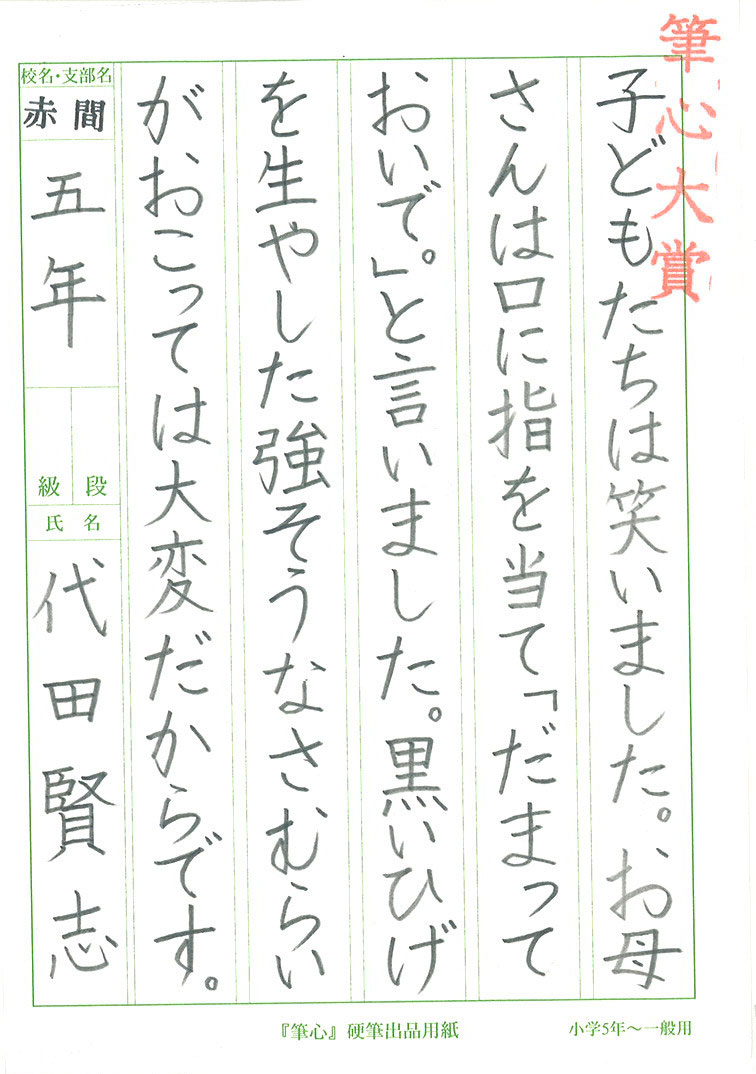 筆心大賞
子どもたちは笑いました。お母
さんは口に指を当て「だまって
おいで。」と言いました。黒いひげ
を生やした強そうなさむらい
がおこっては大変だからです。
校名・支部名
赤間
五年
級 段
氏名
代田賢志
『筆心』硬筆出品用紙
小学5年～一般用